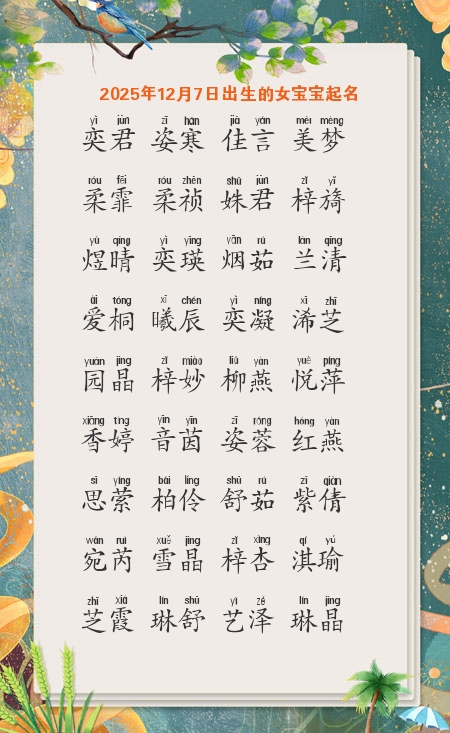 2025年12月7日出生的女宝宝起名
yì jūn zī hán jiā yán měi mèng
奕君 姿寒 佳言 美梦
róu fēi róu zhēn shū jūn zǐ yǐ
柔霏 柔祯 姝君 梓旖
yù qíng yì yīng yān rú lán qīng
煜晴 奕瑛 烟茹 兰清
ài tóng xī chén yì níng xī zhī
爱桐 曦辰 奕凝 浠芝
yuán jīng zǐ miào liǔ yàn yuè píng
园晶 梓妙 柳燕 悦萍
xiāng tíng yīn yīn zī róng hóng yàn
香婷 音茵 姿蓉 红燕
sī yíng bǎi líng shū rú zǐ qiàn
思萦 柏伶 舒茹 紫倩
wǎn ruì xuě jīng zǐ xìng qí yú
宛芮 雪晶 梓杏 淇瑜
zhī xiá lín shū yì zé lín jīng
芝霞 琳舒 艺泽 琳晶